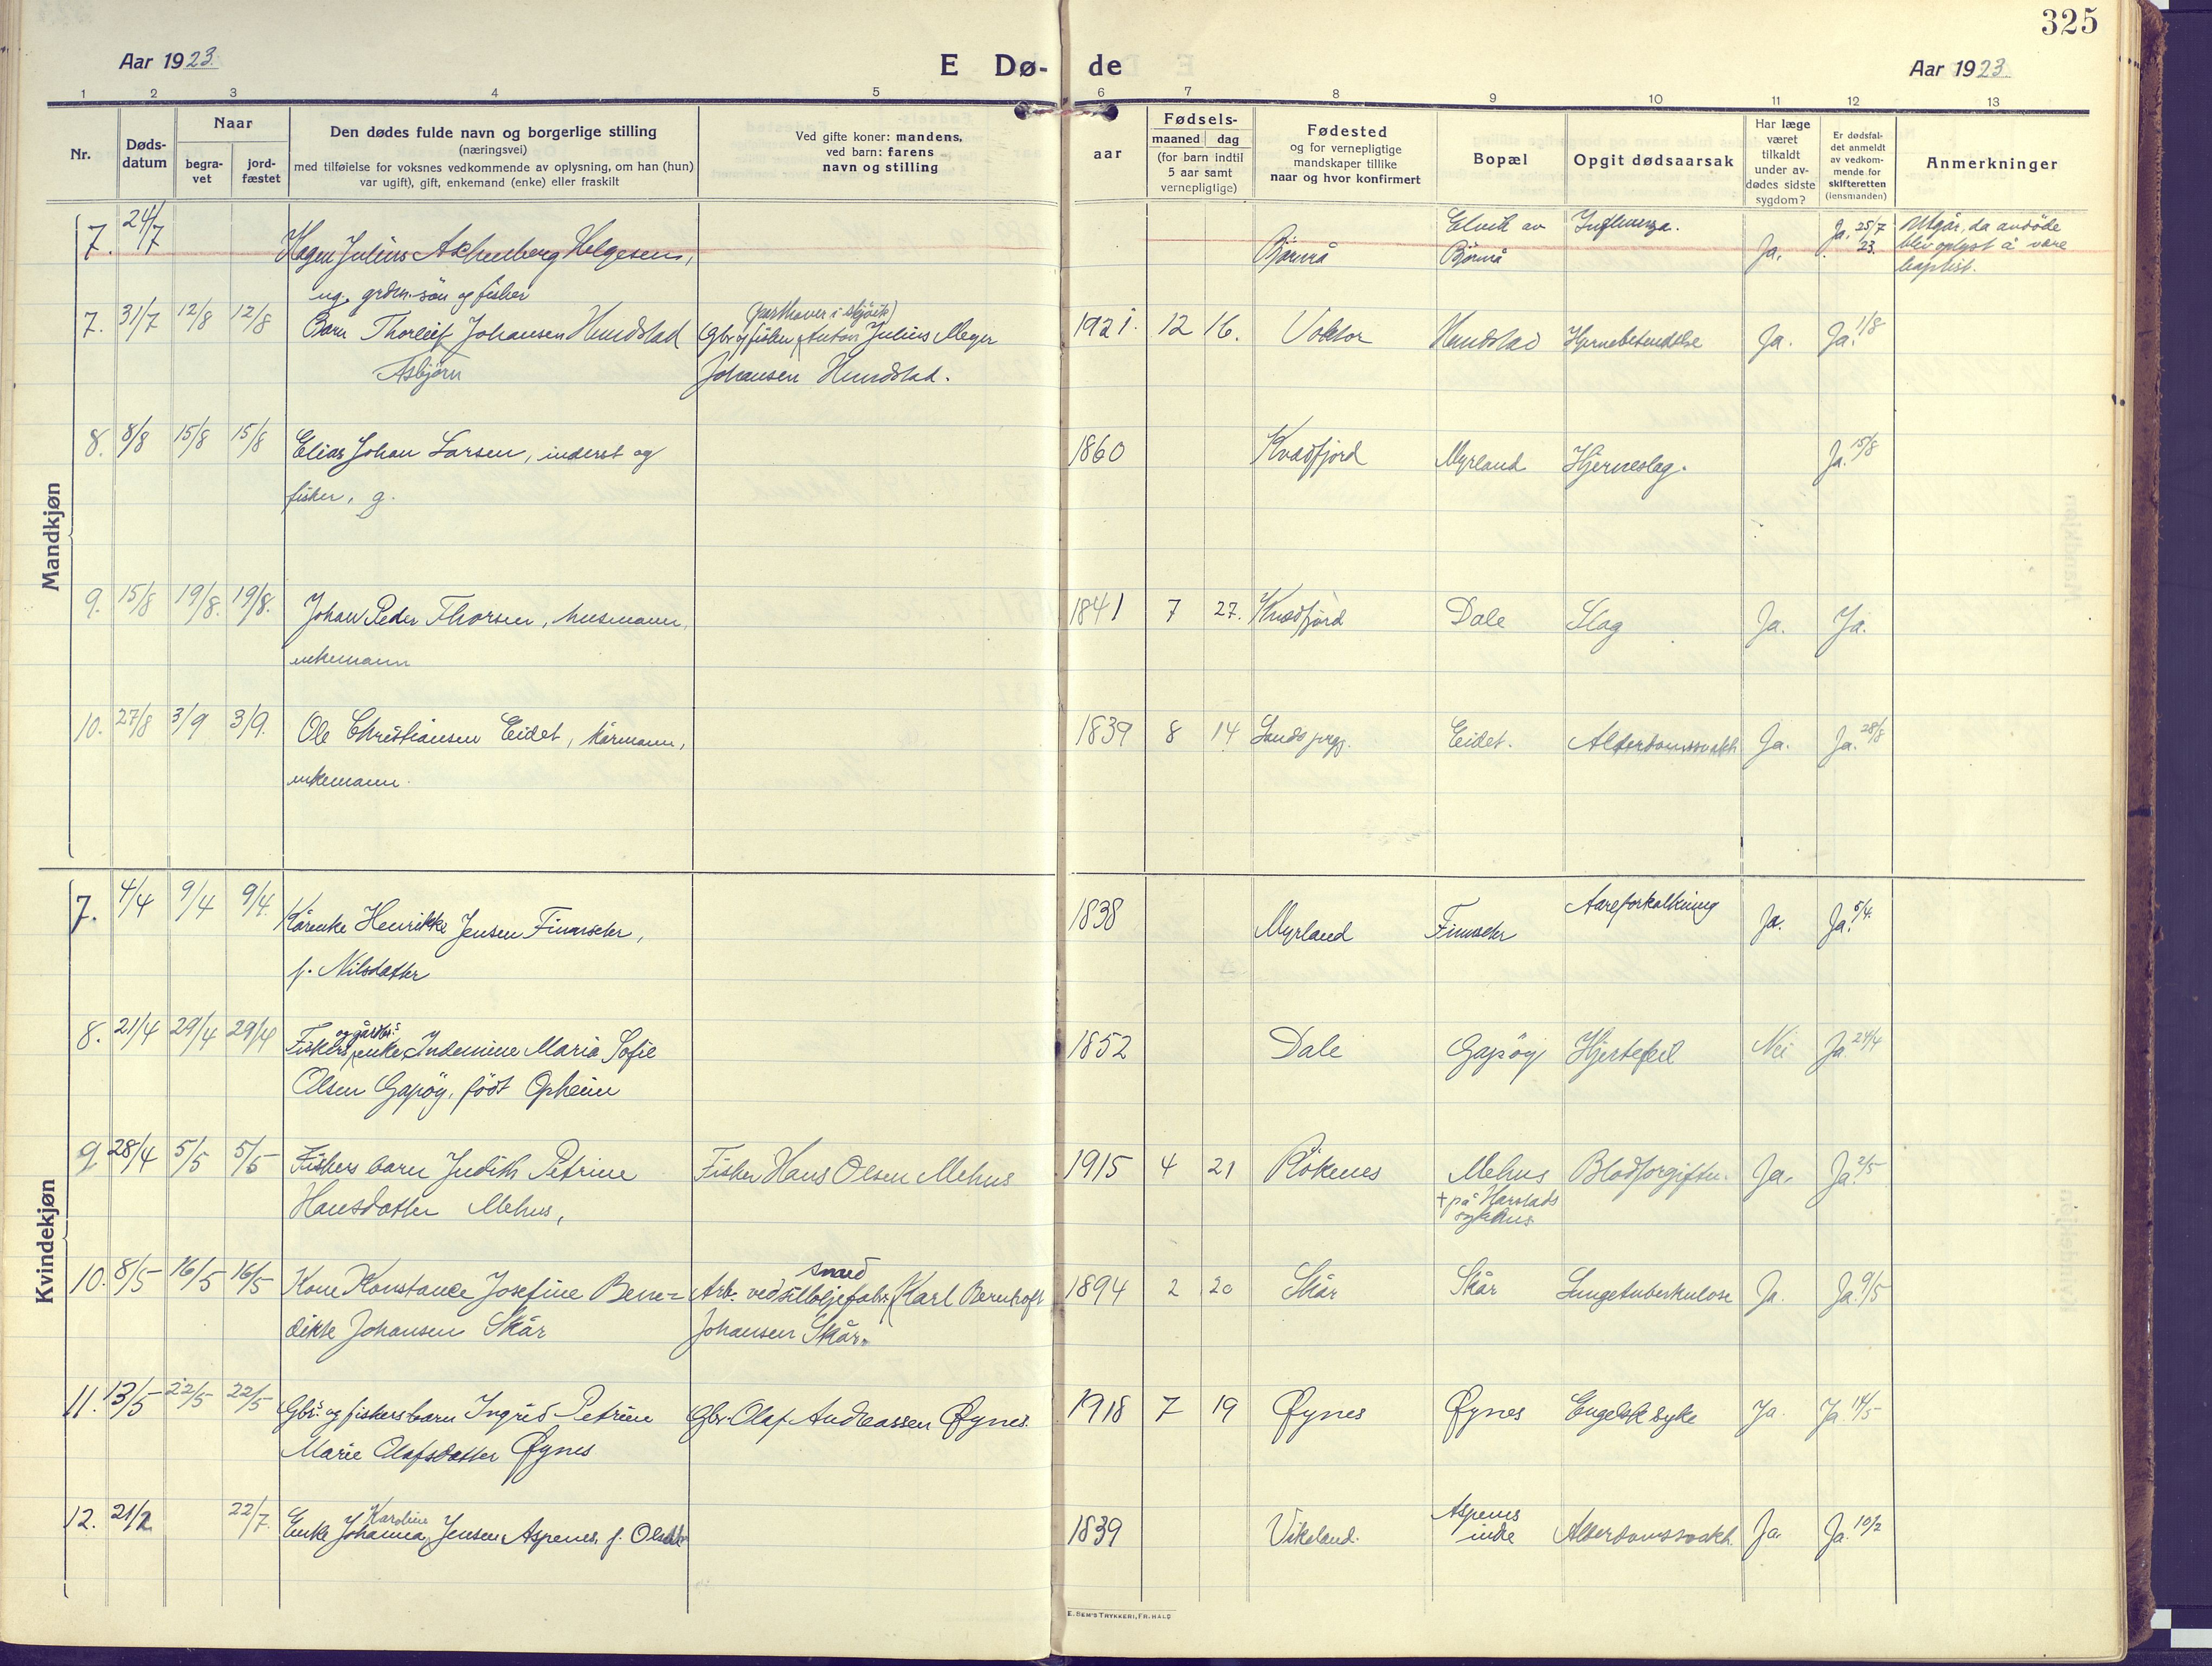 325
Aar 1923.
E Dø- de
Aar 1923.
1 2 3 4 5 6 7 8 9 10 11 12 13
Nr.
Døds-
datum
Naar
begra-
vet
jord-
fæstet
Den dødes fulde navn og borgerlige stilling
(næringsvei)
med tilføielse for voksnes vedkommende av oplysning, om han (hun)
var ugift), gift, enkemand (enke) eller fraskilt
Ved gifte koner: mandens,
ved barn: farens
navn og stilling
aar
Fødsels-
maaned dag
(for barn indtil
5 aar samt
vernepligtige)
Fødested
og for vernepligtige
mandskaper tillike
naar og hvor konfirmert
Bopæl
Opgit dødsaarsak
Har læge
været
tilkaldt
under av-
dødes sidste
sygdom?
Er dødsfal-
det anmeldt
av vedkom-
mende for
skifteretten
(lensmanden)
Anmerkninger
Mandkjøn
7. 24/7 Hagen Julius Helgesen, Bjørnrå Elvik av Influenza. Ja. Ja. 25/7 Utgår, da avdöde
ug. grdm. sön og fisker Bjørnrå 23. blev oplyst å være
baptist.
7. 31/7 12/8 12/8 Barn Thorleif Johansen Hundstad (parthaver i skjöik) 1921. 12 16. Voktor Hundstad Hjernebetendelse Ja. Ja. 1/8
Asbjörn Gbr. og fisker Anton Julius Meyer
Johansen Hundstad.
8. 8/8 15/8 15/8 Elias Johan Larsen, inderst og 1860 Kvædfjord Myrland Hjerneslag. Ja. 15/8
fisker, g.
9. 15/8 19/8. 19/8. Johan Peder Thorsen, husmann, 1841 7 27. Kvædfjord Dale Slag Ja. Ja.
enkemann
10. 27/8 3/9 3/9. Ole Christiansen Eidet, kårmann, 1839 8 14 Sands prgj. Eidet. Alderdomssvakh. Ja. Ja. 28/8
enkemann.
Kvindekjøn
7. 4/4 9/4 9/4. Kårenke Henrikke Jensen Finnsæter, 1838 Myrland Finnsæter Aareforkalkning Ja. Ja. 5/4.
f. Nilsdatter
8. 21/4 29/4 29/4 og gårdbr.s
Fiskers enke Indemine Maria Sofie 1852 Dale Gapöy Hjertefeil Nei Ja 24/4
Olsen Gapöy, födt Opheim
9. 28/4 5/5 5/5 Fiskers barn Judith Petrine Fisker Hans Olsen Mehus 1915 4 21 Rökenes Mehus Blodforgiftn. Ja. Ja 2/5
Hansdatter Mehus, † på Harstads
sykehus
10. 8/5 16/5 16/5 Kone Konstance Josefine Bene= Arb. ved sildoljefabr. Karl Bernhoft 1894 2 20 Skår Skår Lungetuberkulose Ja. Ja. 9/5
dikte Johansen Skår Johansen Skår.
11. 13/5 22/5 22/5 Gbr.s og fiskers barn Ingrid Petrine Gbr. Olaf Andreassen Øynes. 1918 7 19 Øynes Øynes Engelsk syke Ja. Ja. 14/5
Marie Olafsdatter Øynes
12. 21/2 22/7. Karoline Aspenes
Enke Johanna Jensen Aspenes, f. Olsdatter 1839 Vikeland. indre Alderdomssvakh. Ja. Ja. 10/2
E. SEM'S TRYKKERI, FR.HALD